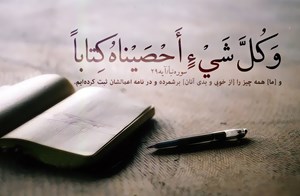 وَكُلَّ شَيْءٍ أَحْصَيْنَاهُ كِتَاباً
سوره نبأ آیه ۲۹
و [ما] همه چیز را [از خوبی و بدی آنان] برشمرده و در نامه اعمالشان ثبت کرده‌ایم